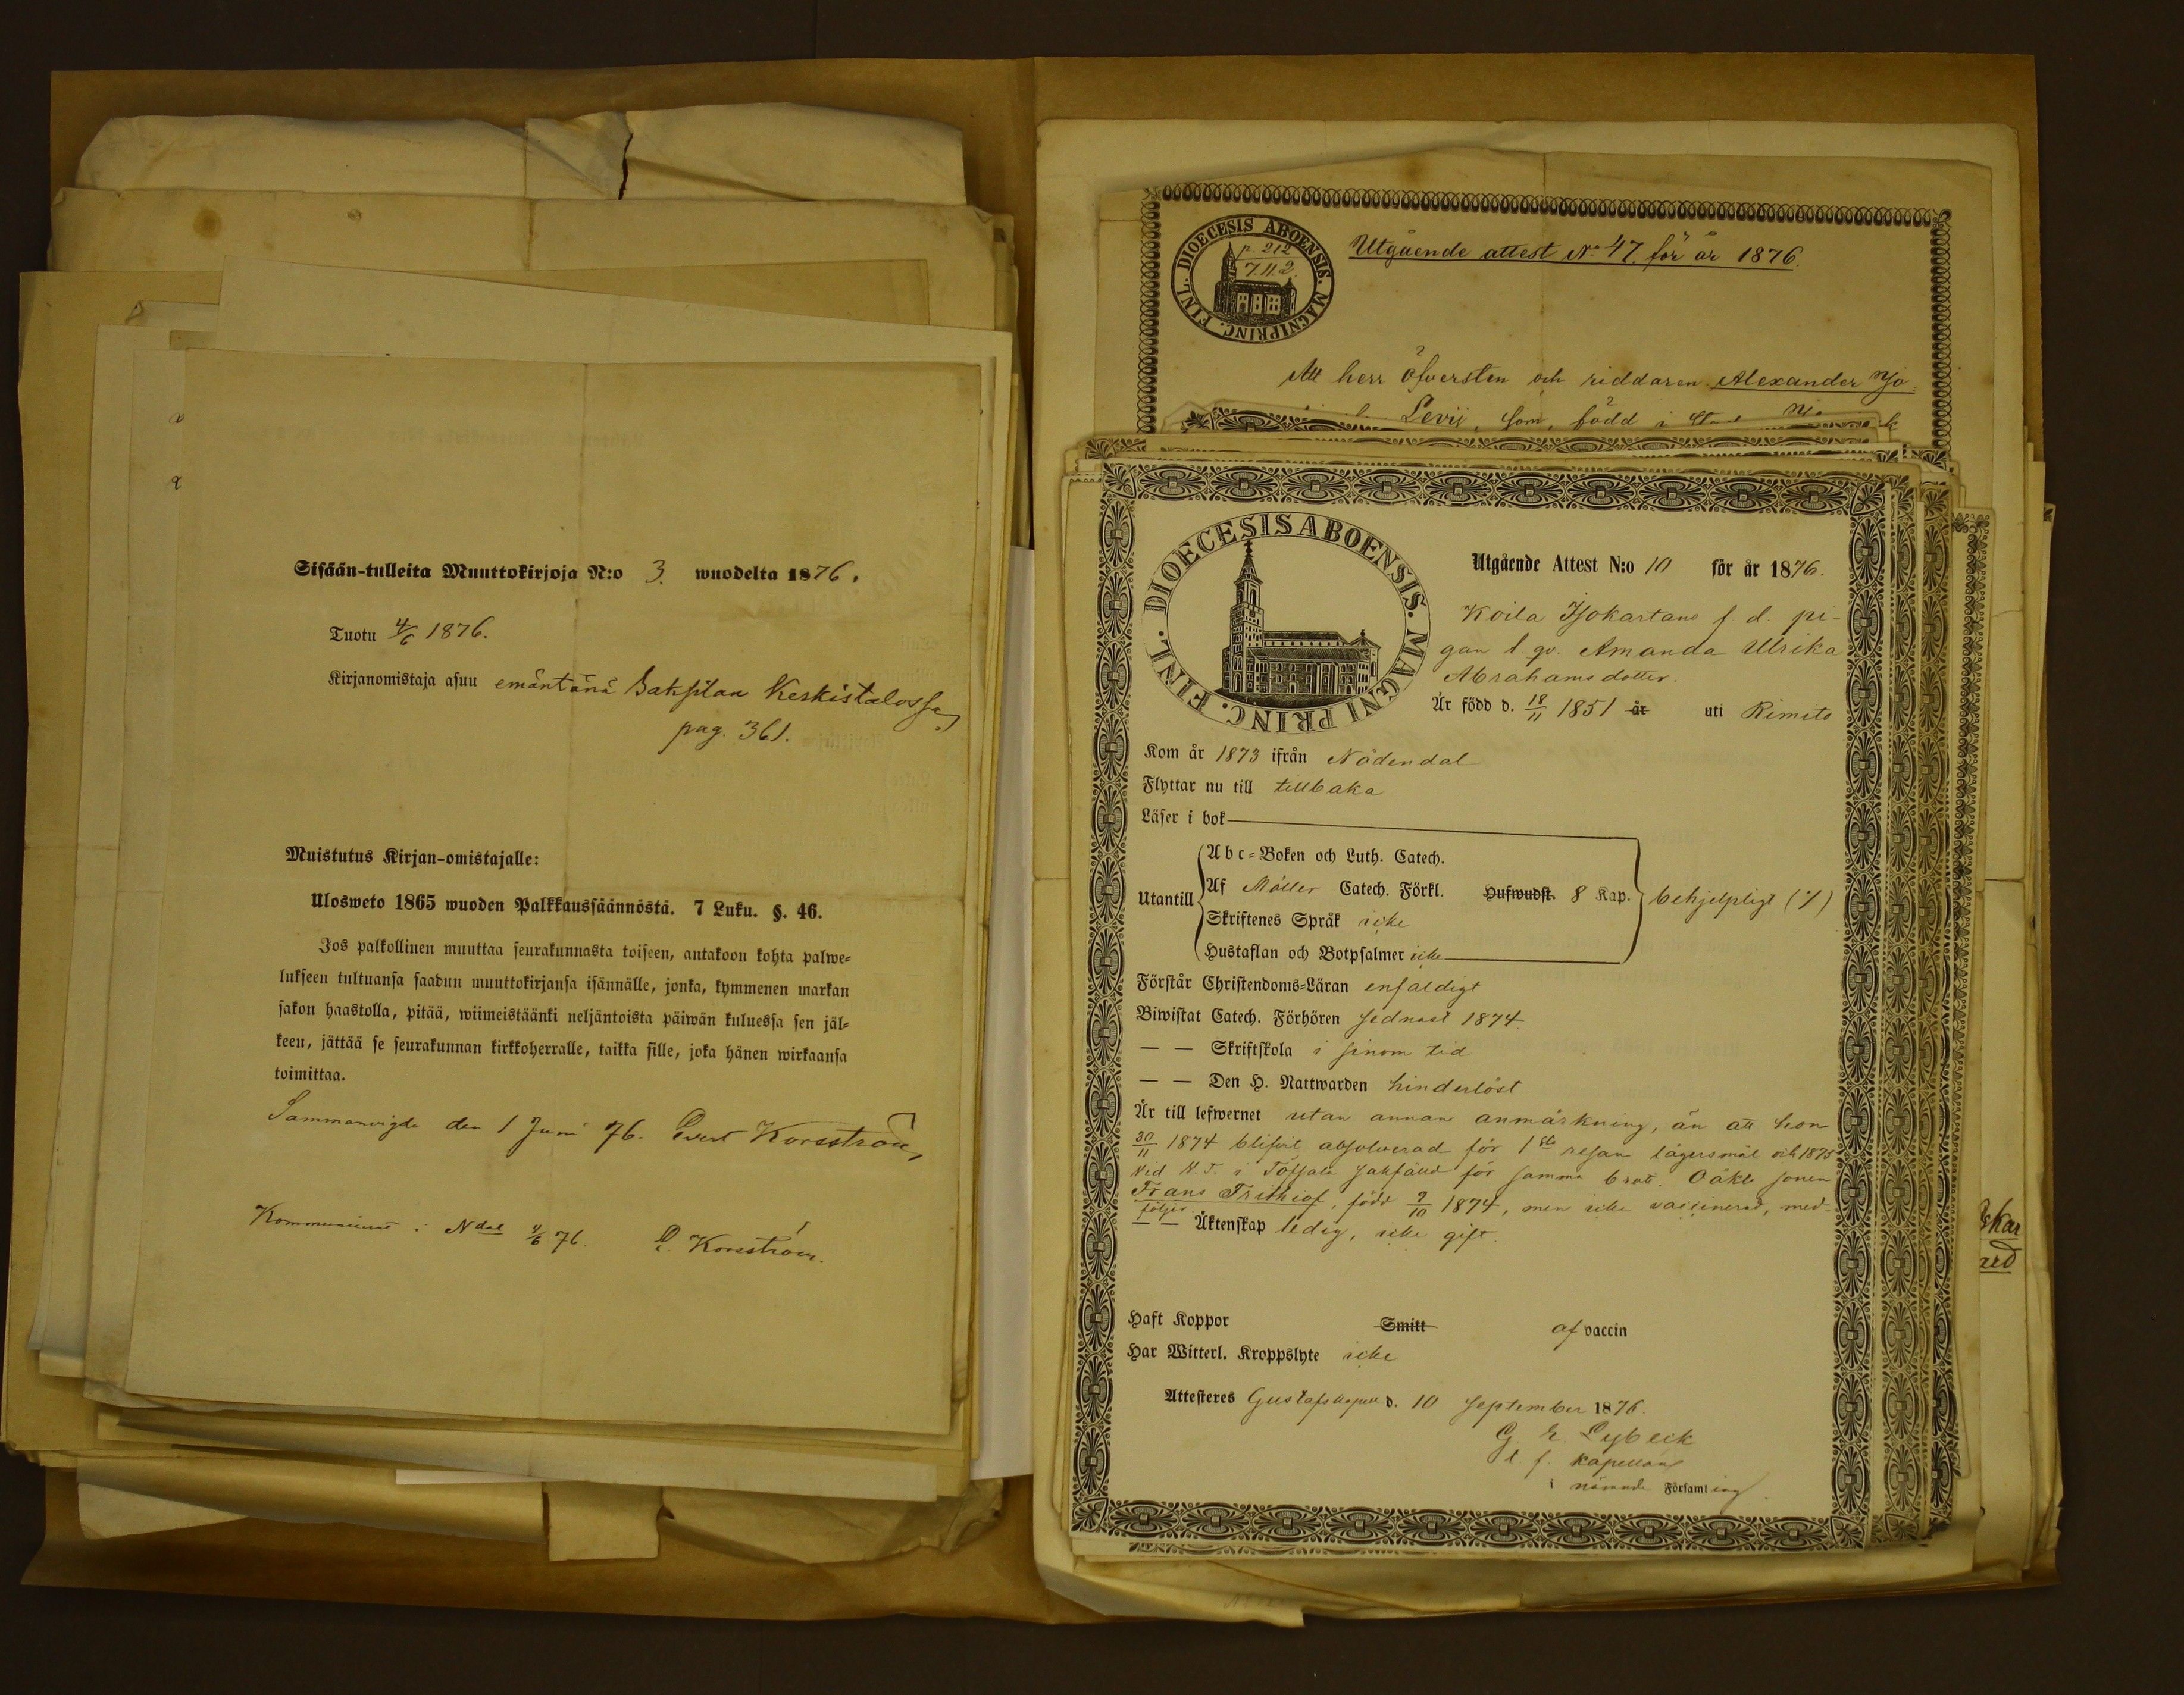 Sisään-tulleita Muuttokirjoja N:o 3. wuodelta 1876.
Tuotu 4/6 1876.
Kirjanomistaja asuu emäntänä Saksilan Keskistalossa,
pag. 361.
Muistutus Kirjan-omistajalle:
Ulosweto 1865 wuoden Palkkaussäännöstä. 7 Luku. §. 46.
Jos palkollinen muuttaa seurakunnasta toiseen, antakoon kohta palwe=
lukseen tultuansa saadun muuttokirjansa isännälle, jonka, kymmenen markan
sakon haastolla, pitää, wiimeistäänki neljäntoista päiwän kuluessa sen jäl=
keen, jättää se seurakunnan kirkkoherralle, taikka sille, joka hänen wirkaansa
toimittaa.
Sammanvigde den 1 Juni 76. Evert Korsström,
Kommunicerat i Ndal 4/6 76. E. Korsström.
FINL. DIOECESIS ABOENSIS. MAGNI PRINC.
p. 212
7.11.2.
Utgående attest No 47. för år 1876.
Att herr öfversten och riddaren Alexander
Levij, som, född i
FINL. DIOECESIS ABOENSIS. MAGNI PRINC.
Utgående Attest N:o 10 för år 1876.
Koila Isokartano f d. pi-
gan l. qv. Amanda Ulrika
Abrahamsdotter.
Är född d. 18/11 1851 år uti Rimito
Kom år 1873 ifrån Nådendal
Flyttar nu till tillbaka
Läser i bok
Utantill
Abc=Boken och Luth. Catech.
Af Möller Catech. Förkl. Hufwudst. 8 Kap.
Skriftenes Språk icke
Hustaflan och Botpsalmer icke
behjelpligt
Förstår Christendoms=Läran enfaldigt
Biwistat Catech. Förhören sednast 1874
— — Skriftskola i sinom tid
— — Den H. Nattwarden hinderlöst
Är till lefwernet utan annan anmärkning, än att hon
30/11 1874 blifvit absolverad för 1sta resan lägersmål och 1875
vid H.T. i Töfsala sakfälld för samma brott. Oäkta sonen
Frans Frithiof, född 9/10 1874, men icke vaccinerad, med-
följer.
— — Äktenskap ledig, icke gift.
Haft Koppor Smitt af vaccin
Har Witterl. Kroppslyte icke
Attesteres Gustafs kapell d. 10 september 1876.
G. E. Lybeck
t. f. kapellan
i nämnde Församling.